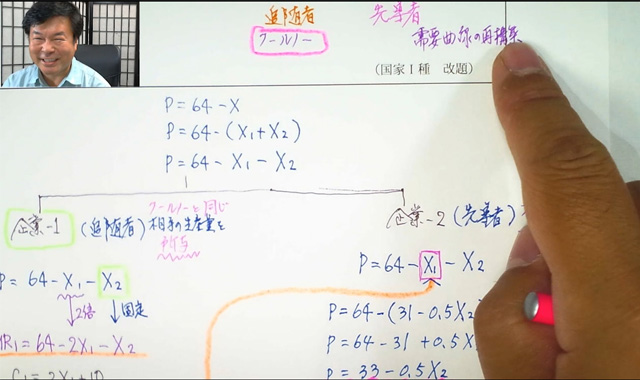 追随者
先導者
クールノー
需要曲線の再構築
(国家Ⅰ種 改題)
P=64-X
P=64-(X₁+X₂)
P=64-X₁-X₂
企業-1
(追随者)
クールノーと同じ
相手の生産量を
所与
P=64-X₁-X₂
2倍
固定
MR₁=64-2X₁-X₂
企業-2(先導者)
P=64-X₁-X₂
P=64-(31-0.5X₂
P=64-31+0.5X
P=33-0.5X₂